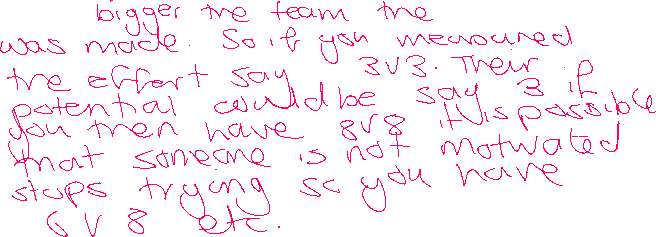 bigger the team the
was made. So if you measured
the effort say 3v3. Their
potential could be say 3 if
you then have 8v8 it is possible
that someone is not motivated
stops trying so you have
6 v 8 etc.